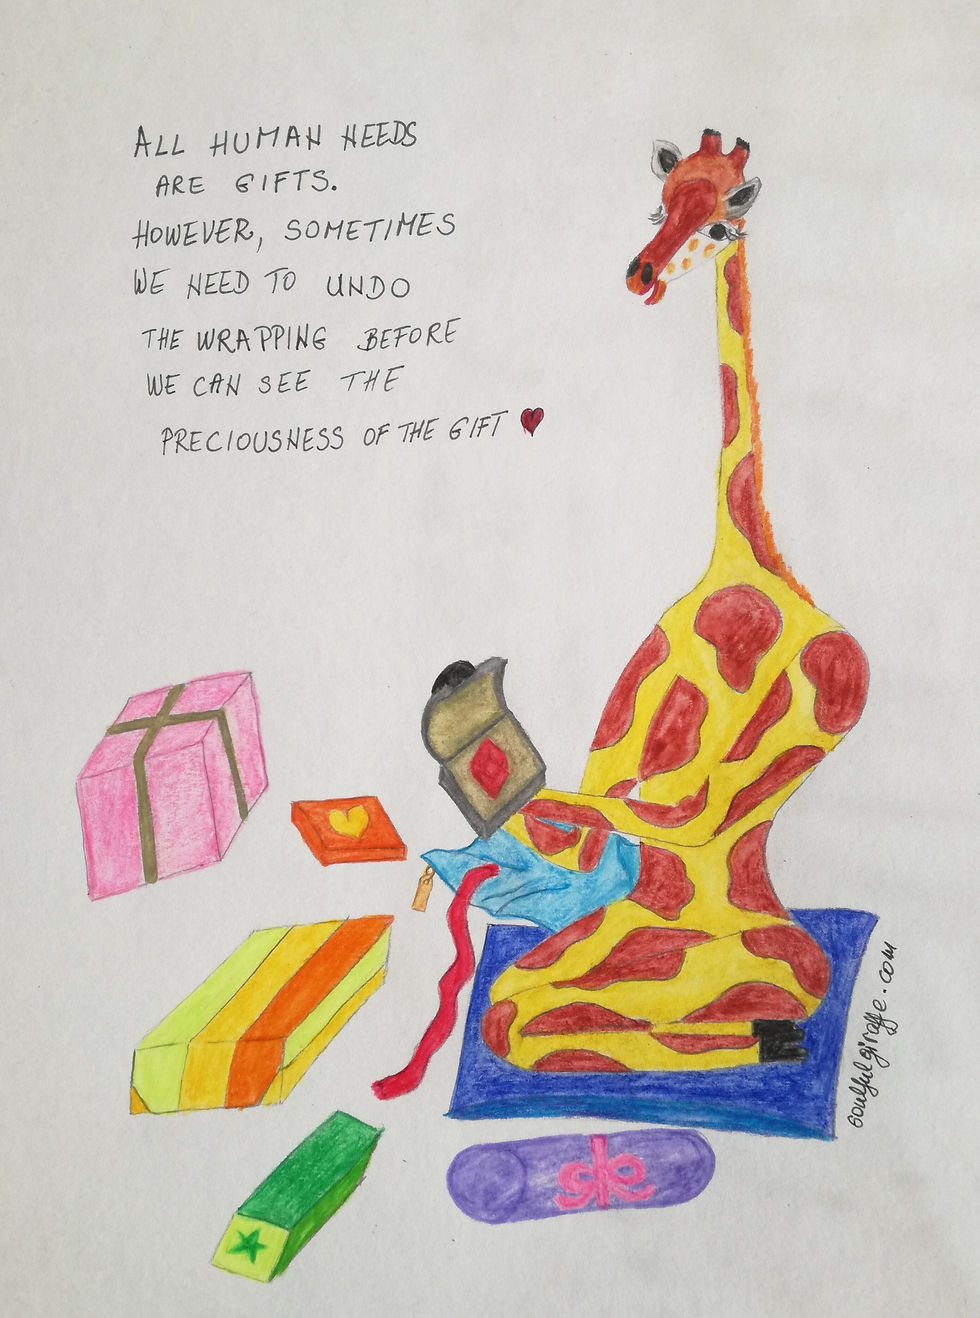 ALL HUMAN NEEDS
ARE GIFTS.
HOWEVER, SOMETIMES
WE NEED TO UNDO
THE WRAPPING BEFORE
WE CAN SEE THE
PRECIOUSNESS OF THE GIFT
soulfulgiraffe.com